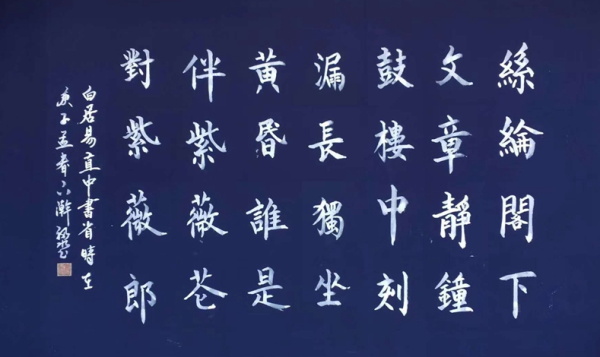 絲綸閣下
文章靜鐘
鼓樓中刻
漏長獨坐
黄昏誰是
伴紫薇花
對紫薇郎
白居易直中書省時在
庚子孟春